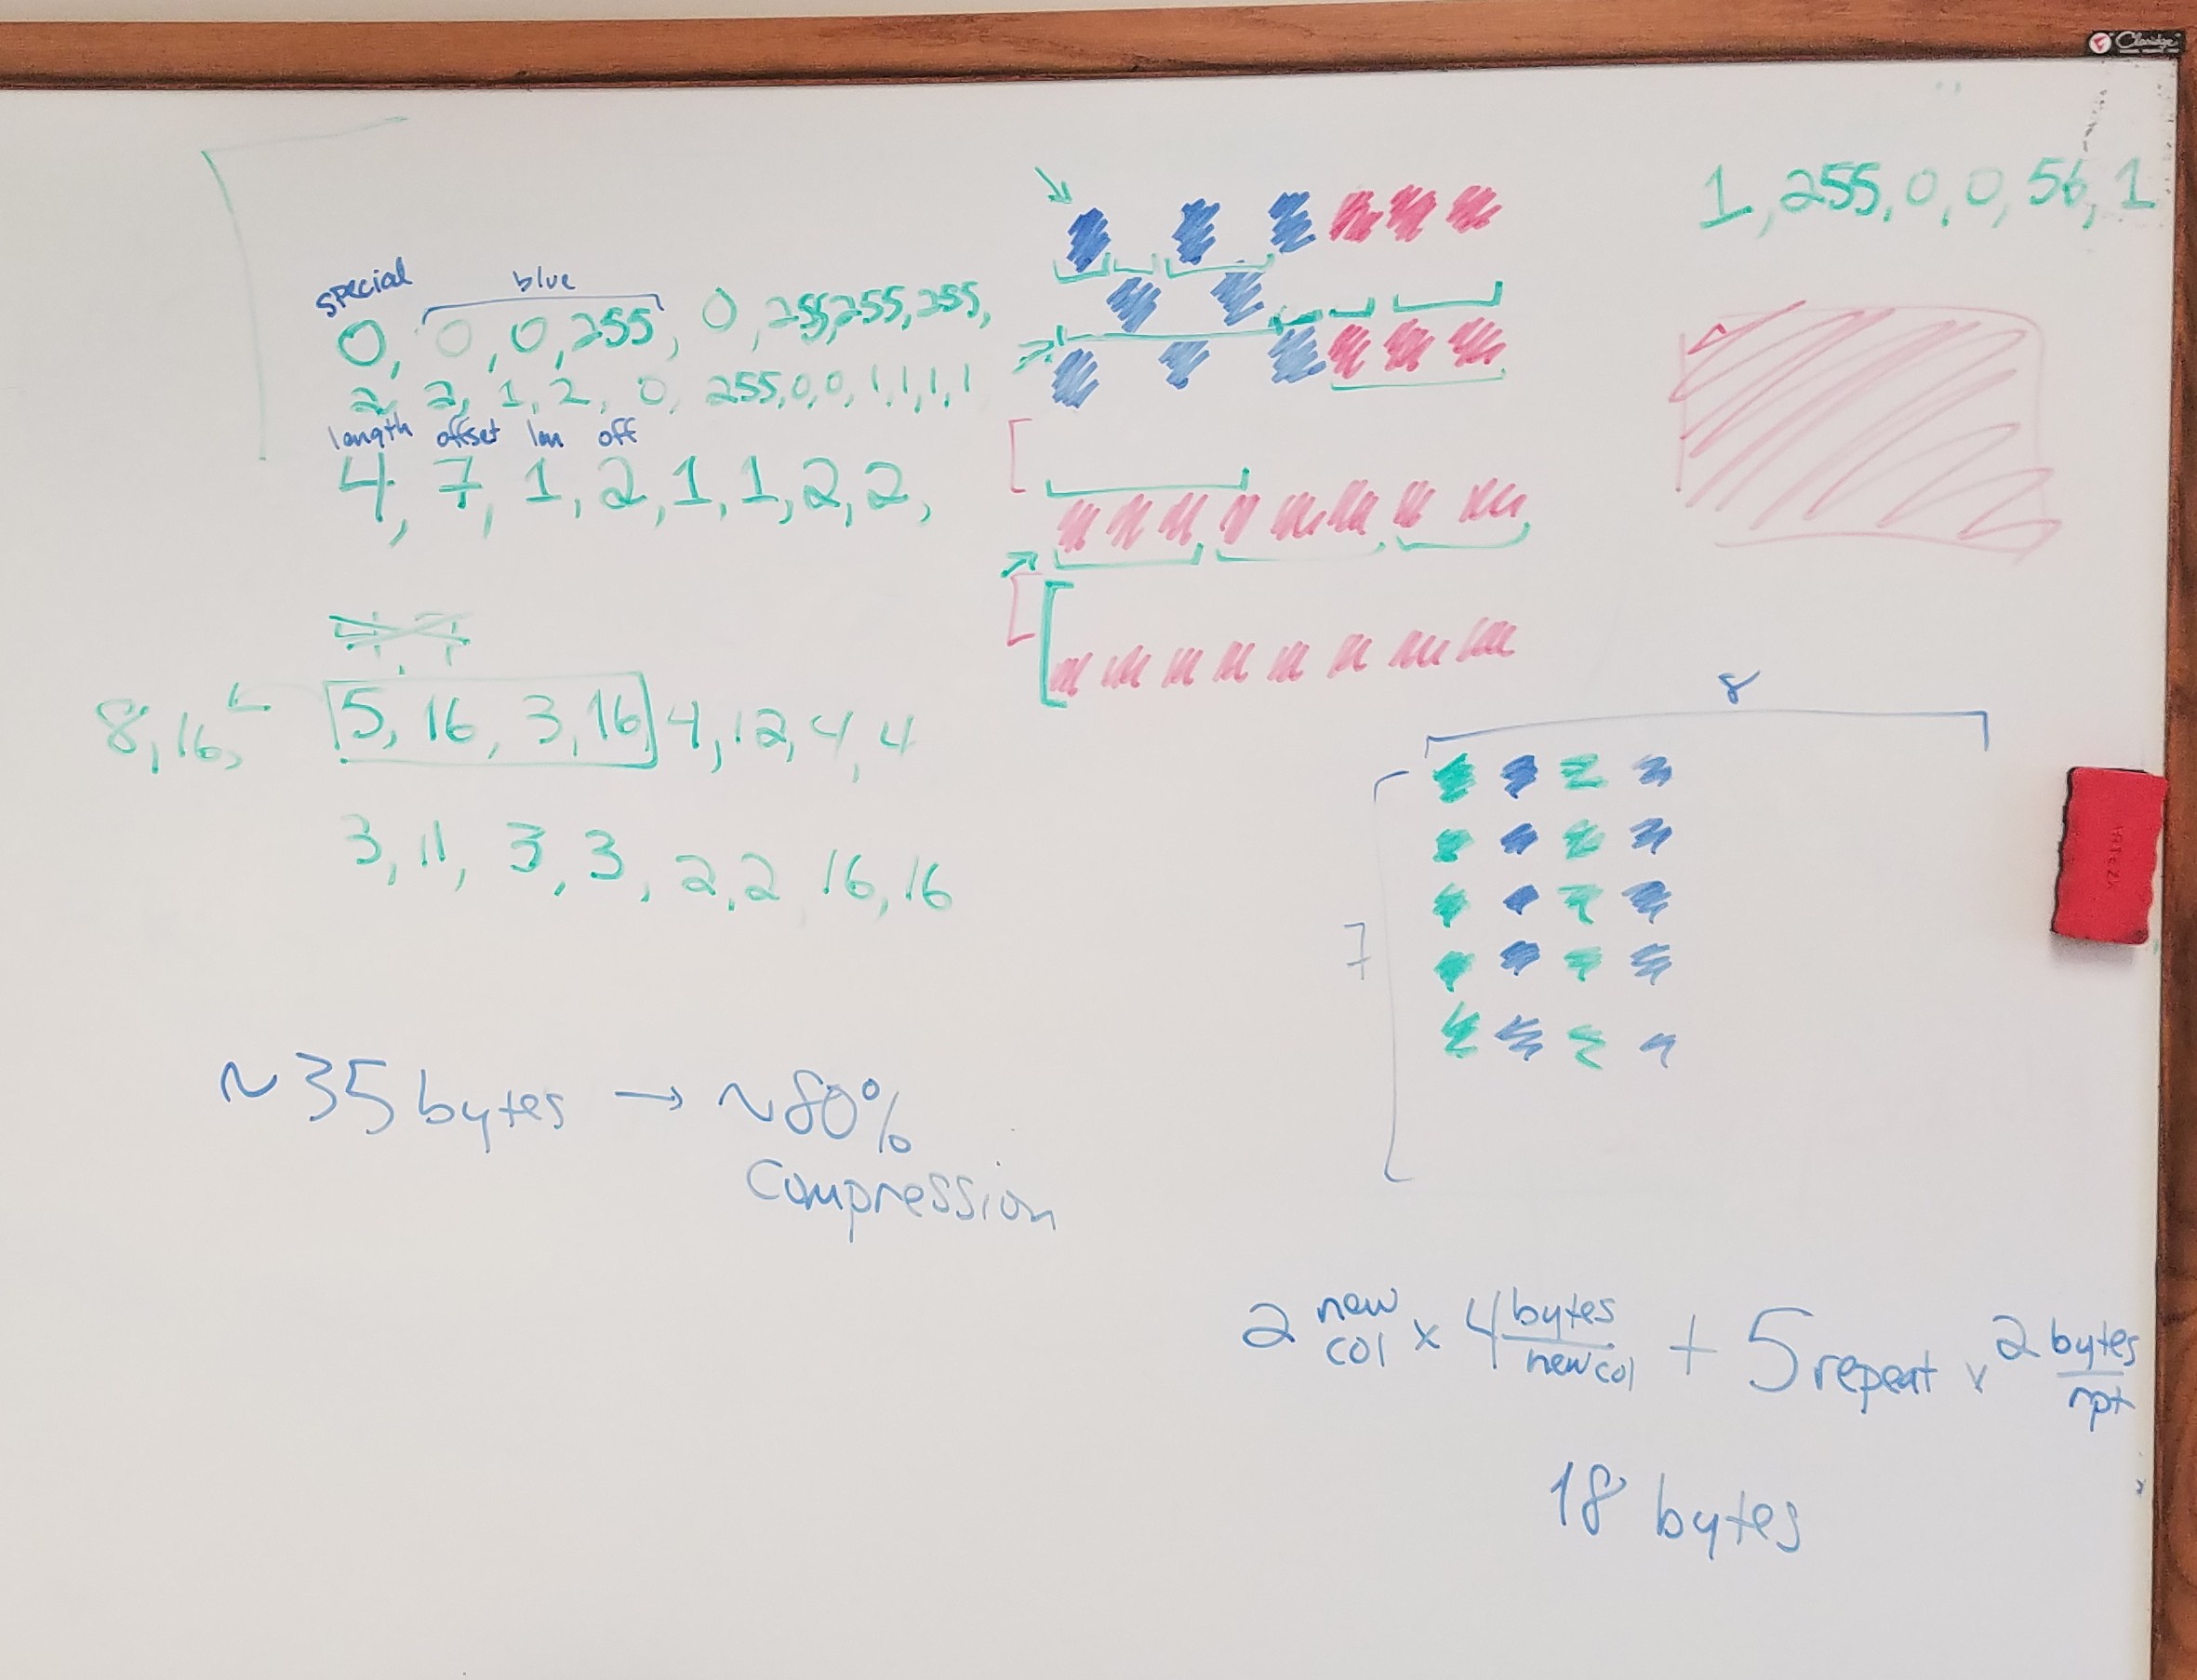 Claridge
1, 255, 0, 0, 56, 1
special
blue
0, 0, 0, 255, 0, 255, 255, 255,
2, 2, 1, 2, 0, 255, 0, 0, 1, 1, 1, 1
length offset len off
4, 7, 1, 2, 1, 1, 2, 2,
4, 7
8, 16, 5, 16, 3, 16, 4, 12, 4, 4
3, 11, 3, 3, 2, 2 16, 16
8
7
~35 bytes → ~80%
compression
2 new col x 4 bytes/new col + 5 repeat x 2 bytes/rpt
18 bytes